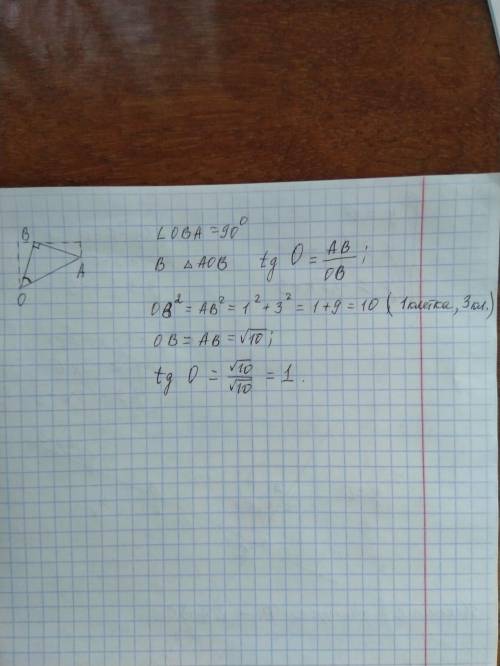 B
A
O
∠OBA = 90°
В △AOB tg O = AB/OB;
OB² = AB² = 1² + 3² = 1 + 9 = 10 (1 клетка, 3 кл.)
OB = AB = √10;
tg O = √10/√10 = 1.